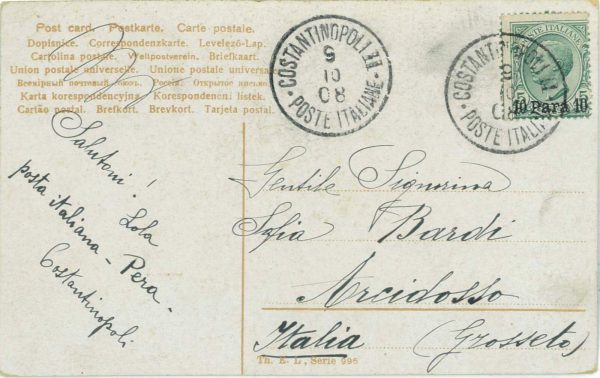 Post card. Postkarte. Carte postale.
Dopisnice. Correspondenzkarte. Levelező-Lap.
Cartolina postale. Weltpostverein. Briefkaart.
Union postale universelle. Unione postale universale.
Всемірный почтовый союзъ. Россія. Открытое письмо.
Karta korespondencyjna. Korespondenční listek.
Cartão postal. Brefkort. Brevkort. Tarjeta postal.
COSTANTINOPOLI
POSTE ITALIANE
COSTANTINOPOLI
POSTE ITALIANE
POSTE ITALIANE
10 Para 10
Salutoni!
Lola
posta italiana - Pera -
Costantinopoli
Gentile Signorina
Sofia Bardi
Arcidosso
Italia (Grosseto)
Th. E. L., Serie 995